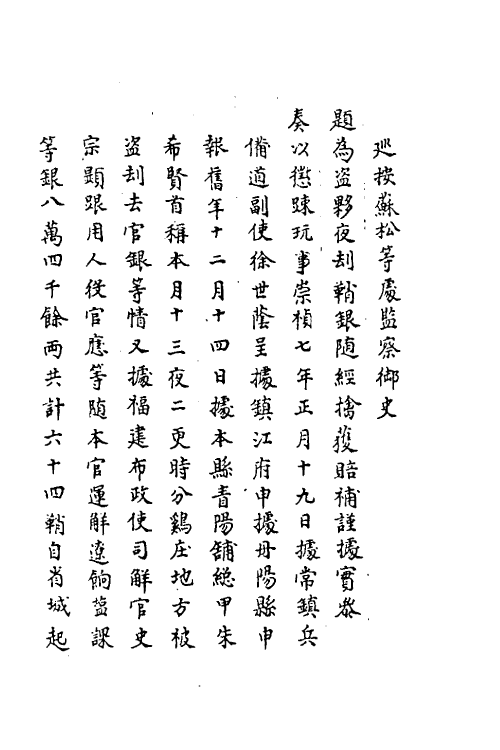 廵按蘇松等處監察御史
題為盗夥夜刦鞘銀随經擒獲賠補謹據實叅
奏以懲踈玩事崇禎七年正月十九日據常鎮兵
備道副使徐世蔭呈據鎮江府申據丹陽縣申
報舊年十二月十四日據本縣青陽舗總甲朱
希賢首稱本月十三夜二更時分鷄庄地方被
盗刦去官銀等情又據福建布政使司解官史
宗顕跟用人役官應等随本官運解遼餉塩課
等銀八萬四千餘兩共計六十四鞘自省城起